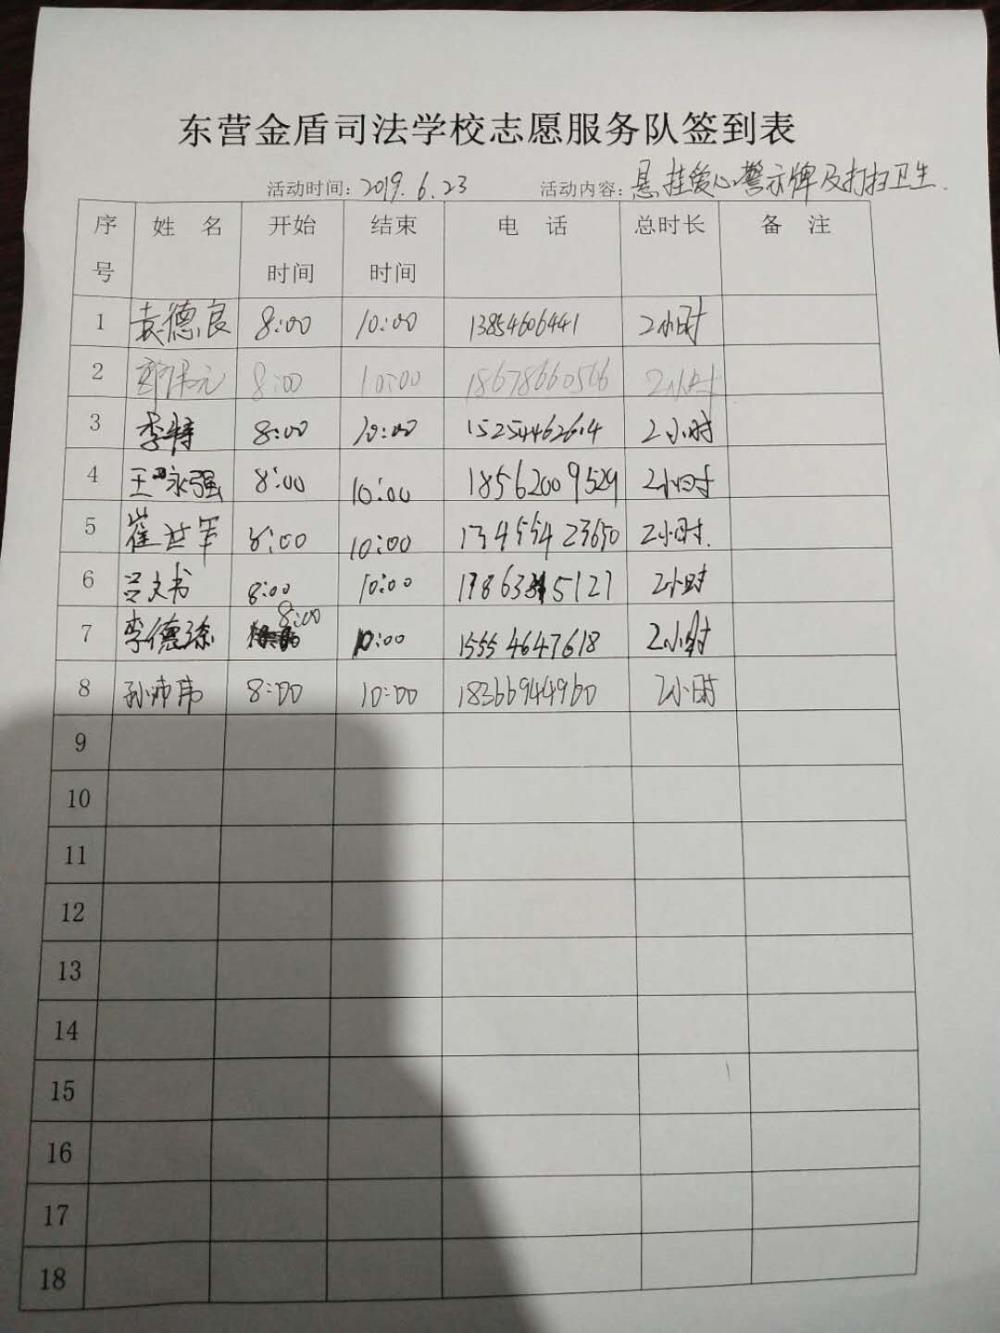 东营金盾司法学校志愿服务队签到表
活动时间：2019.6.23 活动内容：悬挂爱心警示牌及打扫卫生.
序号 姓 名 开始时间 结束时间 电 话 总时长 备 注
1 袁德良 8:00 10:00 13854606441 2小时
2 8:00 10:00 18678660566 2小时
3 李特 8:00 10:00 15254462614 2小时
4 王永强 8:00 10:00 18562009529 2小时
5 崔世军 8:00 10:00 13455423650 2小时.
6 吕文书 8:00 10:00 2小时
7 李德 8:00 10:00 15554647618 2小时
8 孙沛伟 8:00 10:00 18366944960 2小时
9
10
11
12
13
14
15
16
17
18